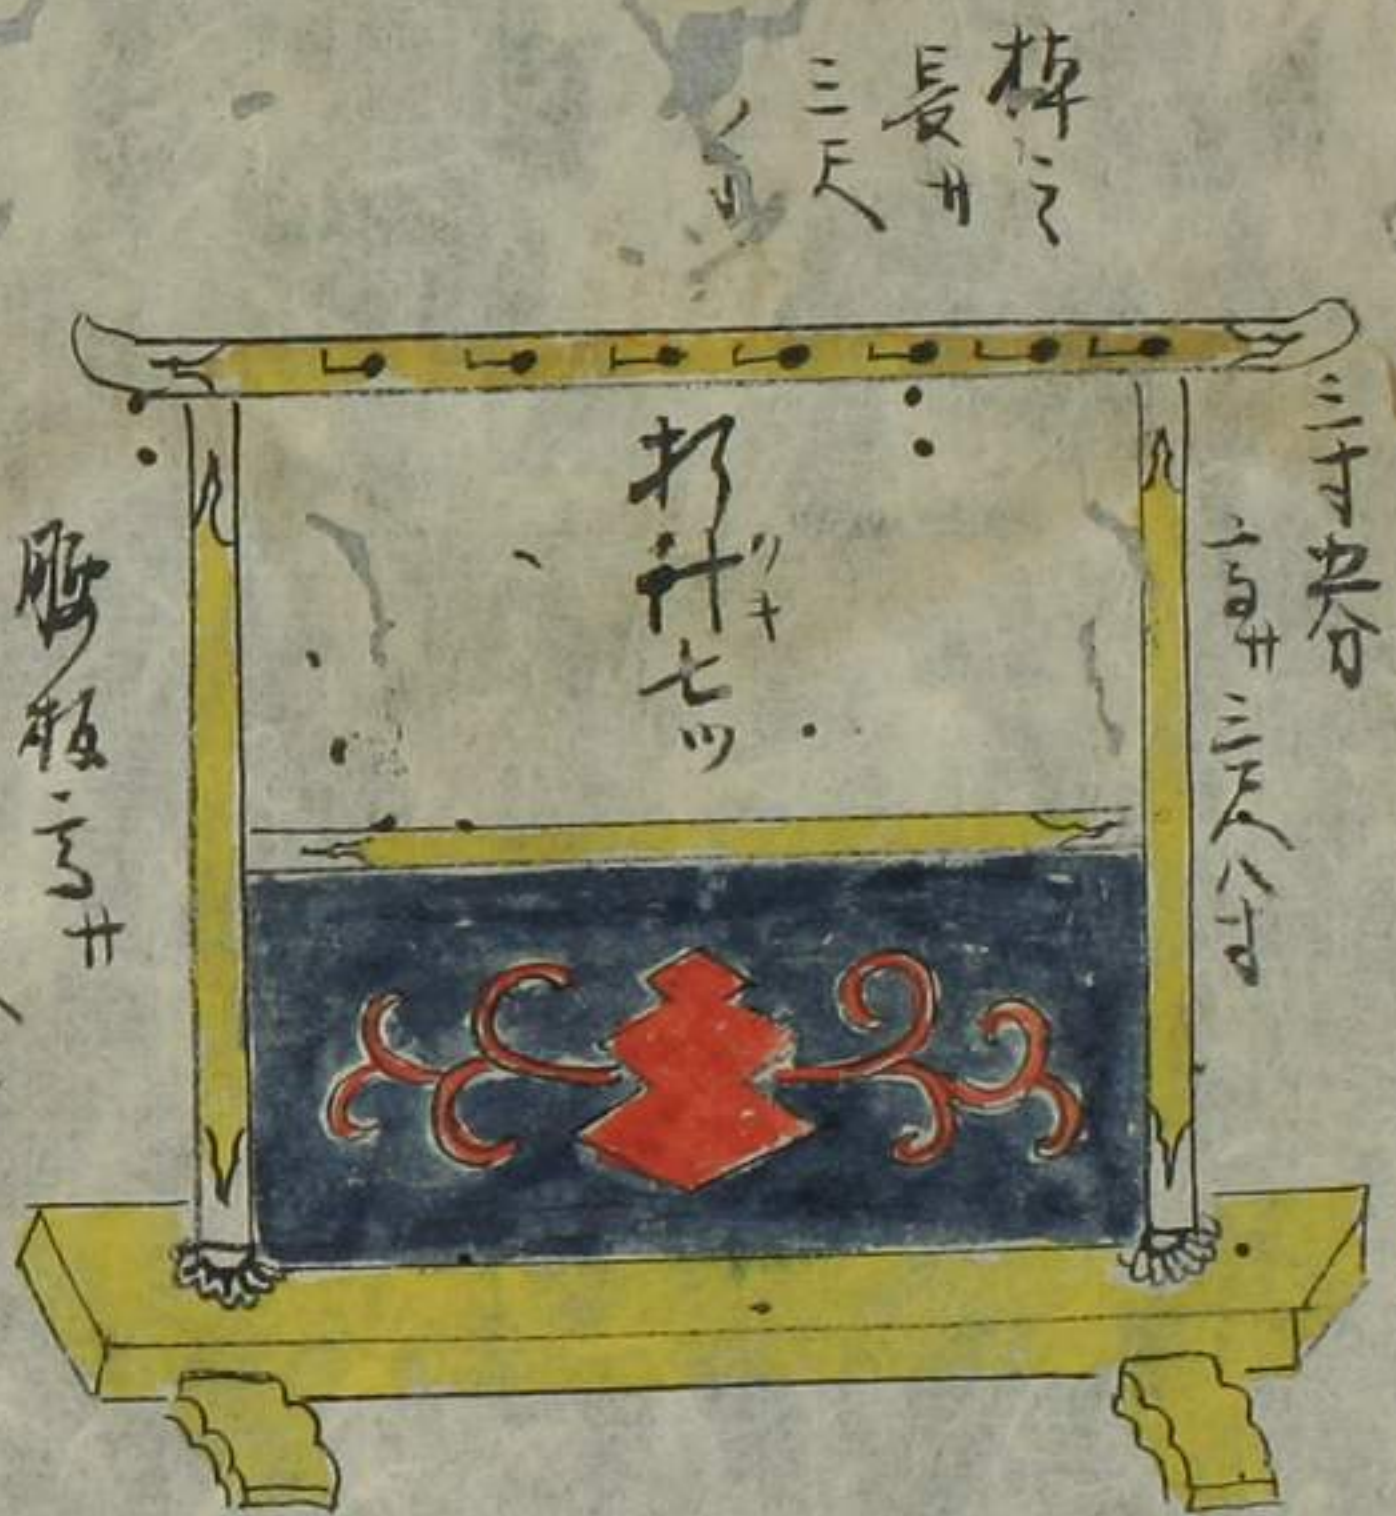 棹之
長サ
三尺
三寸 五分
高サ 三尺八寸
折釘七ツ
クキ
腰板 高サ